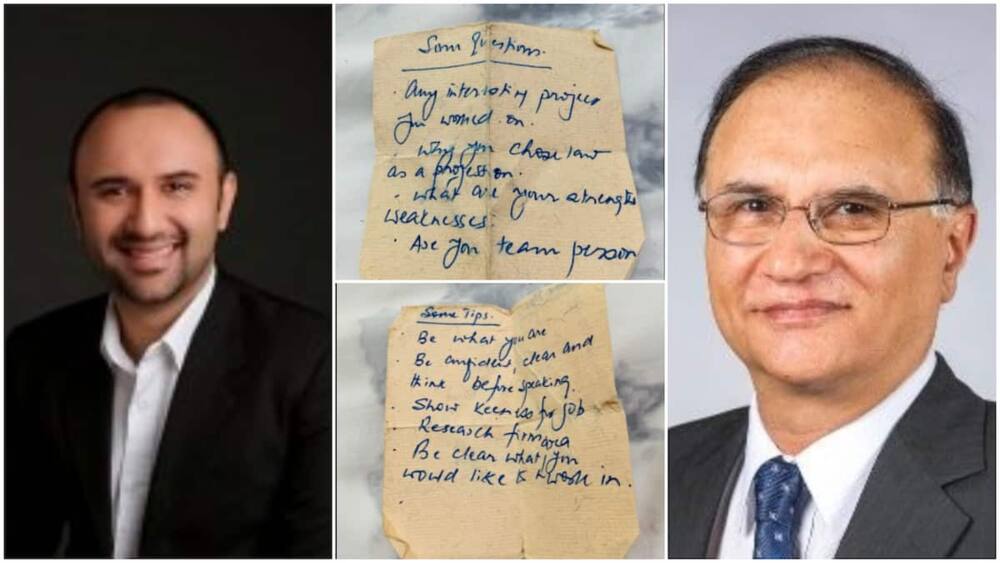 Some Questions.
· Any interesting project
you worked on.
· Why you chose law
as a profession.
· What are your strengths
weaknesses
· Are you team person
Some Tips.
· Be what you are
· Be confident, clear and
think before speaking.
· Show keenness for job
Research firm area
· Be clear what you
would like to work in.